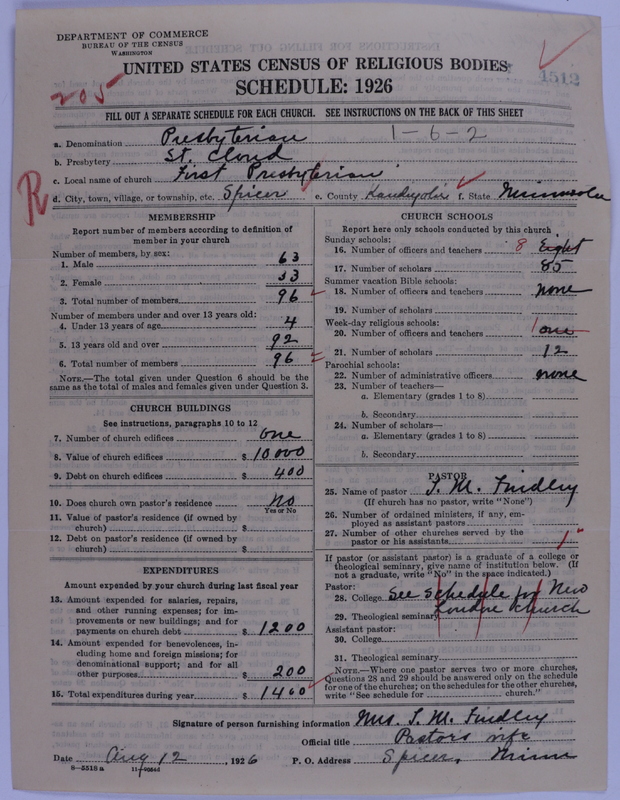 DEPARTMENT OF COMMERCE
BUREAU OF THE CENSUS
WASHINGTON
UNITED STATES CENSUS OF RELIGIOUS BODIES
SCHEDULE: 1926
205
1512
FILL OUT A SEPARATE SCHEDULE FOR EACH CHURCH. SEE INSTRUCTIONS ON THE BACK OF THIS SHEET
1-6-2
a. Denomination Presbyterian
b. Presbytery St. Cloud
c. Local name of church First Presbyterian
R
d. City, town, village, or township, etc. Spicer e. County Kandiyohi f. State Minnesota
MEMBERSHIP
Report number of members according to definition of member in your church
Number of members, by sex:
1. Male 63
2. Female 33
3. Total number of members 96
Number of members under and over 13 years old:
4. Under 13 years of age 4
5. 13 years old and over 92
6. Total number of members 96
NOTE.—The total given under Question 6 should be the same as the total of males and females given under Question 3.
CHURCH BUILDINGS
See instructions, paragraphs 10 to 12
7. Number of church edifices one
8. Value of church edifices $ 10000
9. Debt on church edifices $ 400
10. Does church own pastor's residence No
Yes or No
11. Value of pastor's residence (if owned by church) $
12. Debt on pastor's residence (if owned by church) $
EXPENDITURES
Amount expended by your church during last fiscal year
13. Amount expended for salaries, repairs, and other running expenses; for improvements or new buildings; and for payments on church debt $ 1200
14. Amount expended for benevolences, including home and foreign missions; for denominational support; and for all other purposes $ 200
15. Total expenditures during year $ 1400
CHURCH SCHOOLS
Report here only schools conducted by this church
Sunday schools:
16. Number of officers and teachers 8 Eight
17. Number of scholars 85
Summer vacation Bible schools:
18. Number of officers and teachers none
19. Number of scholars
Week-day religious schools:
20. Number of officers and teachers 1 one
21. Number of scholars 12
Parochial schools:
22. Number of administrative officers none
23. Number of teachers—
a. Elementary (grades 1 to 8)
b. Secondary
24. Number of scholars—
a. Elementary (grades 1 to 8)
b. Secondary
PASTOR
25. Name of pastor T. M. Findley
(If church has no pastor, write "None")
26. Number of ordained ministers, if any, employed as assistant pastors
27. Number of other churches served by the pastor or his assistants 1
If pastor (or assistant pastor) is a graduate of a college or theological seminary, give name of institution below. (If not a graduate, write "No" in the space indicated.)
Pastor:
28. College See Schedule for New
29. Theological seminary London Church
Assistant pastor:
30. College
31. Theological seminary
NOTE.—Where one pastor serves two or more churches, Questions 28 and 29 should be answered only on the schedule for one of the churches; on the schedules for the other churches, write "See schedule for ____ church."
Signature of person furnishing information Mrs. T. M. Findley
Official title Pastors wife
Date Aug 12, 1926 P. O. Address Spicer, Minn
8-5518 a